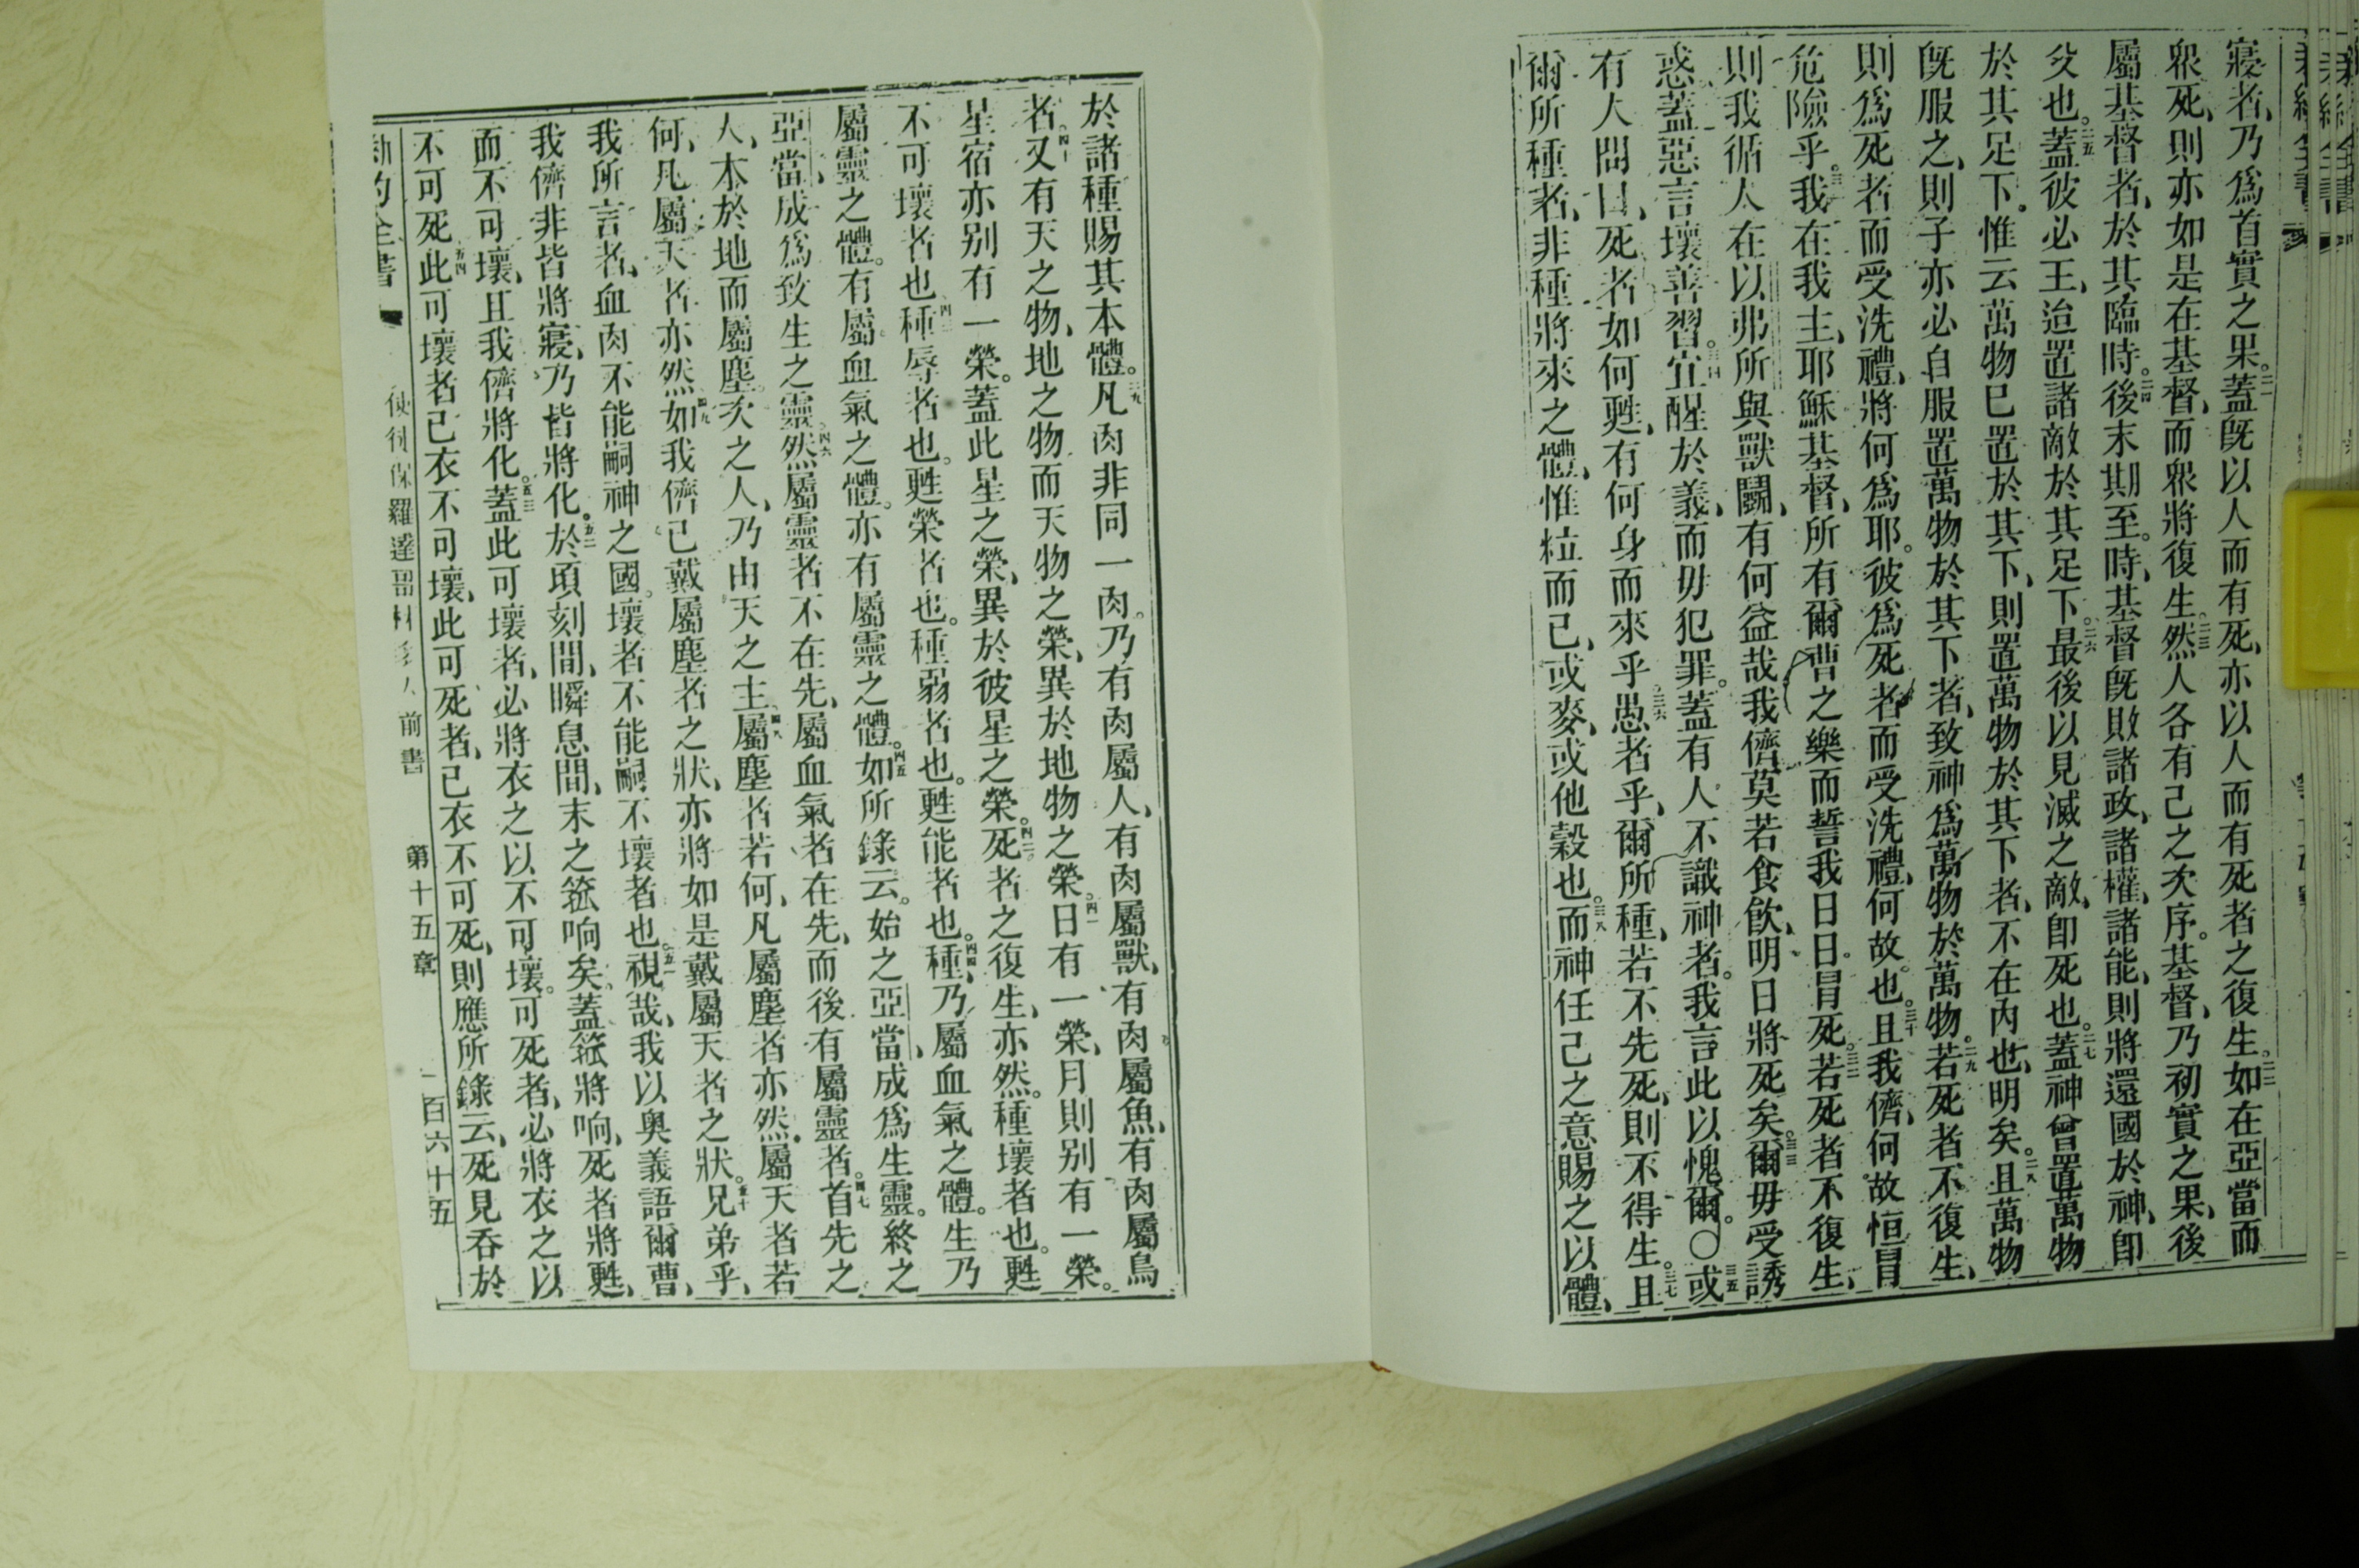 寢者、乃爲首實之果。二一蓋旣以人而有死、亦以人而有死者之復生。二二如在亞當而
衆死、則亦如是在基督、而衆將復生。二三然人各有己之次序。基督、乃初實之果、後
屬基督者、於其臨時。二四後末期至。時、基督旣敗諸政、諸權、諸能、則將還國於神、卽
父也。二五蓋彼必王、迨置諸敵於其足下。二六最後以見滅之敵、卽死也。二七蓋神曾置萬物
於其足下。惟云萬物已置於其下、則置萬物於其下者、不在內也、明矣。二八且萬物
旣服之、則子亦必自服置萬物於其下者、致神爲萬物於萬物。二九若死者不復生、
則爲死者而受洗禮、將何爲耶。彼爲死者而受洗禮、何故也。三十且我儕、何故恒冒
危險乎。三一我在我主、耶穌基督、所有爾曹之樂而誓我日日。冒死。三二若死者不復生、
則我循人在以弗所與獸鬭、有何益哉我儕莫若食飮、明日將死矣。三三爾毋受誘
惑蓋惡言壞善習。三四宜醒於義、而毋犯罪。蓋有人不識神者。我言此以愧爾。〇三五或
有人問曰、死者如何甦、有何身而來乎。三六愚者乎、爾所種、若不先死、則不得生。三七且
爾所種者、非種將來之體、惟粒而已、或麥、或他穀也。三八而神任己之意賜之以體、
於諸種賜其本體。三九凡肉非同一肉。乃有肉屬人、有肉屬獸、有肉屬魚、有肉屬鳥
者。四十又有天之物、地之物、而天物之榮、異於地物之榮。四一日有一榮、月則別有一榮。
星宿亦別有一榮。蓋此星之榮、異於彼星之榮。四二死者之復生、亦然。種壞者也。甦
不可壞者也。四三種辱者也。甦榮者也。種弱者也。甦能者也。四四種、乃屬血氣之體。生乃
屬靈之體。有屬血氣之體。亦有屬靈之體。四五如所錄云。始之亞當、成爲生靈。終之
亞當、成爲致生之靈。四六然屬靈者不在先、屬血氣者在先、而後有屬靈者。四七首先之
人、本於地而屬塵。次之人、乃由天之主。四八屬塵者若何、凡屬塵者亦然。屬天者若
何、凡屬天者亦然。四九如我儕已戴屬塵者之狀、亦將如是戴屬天者之狀。五十兄弟乎、
我所言者、血肉不能嗣神之國。壞者不能嗣不壞者也。五一視哉、我以奧義語爾曹、
我儕非皆將寢、乃皆將化。五二於頃刻間、瞬息間、末之箛响矣。蓋箛將响、死者將甦、
而不可壞、且我儕將化。五三蓋此可壞者、必將衣之以不可壞。可死者、必將衣之以
不可死。五四此可壞者已衣不可壞、此可死者、已衣不可死、則應所錄云、死見吞於
新約全書 使徒保羅達哥林多人前書 第十五章 一百六十五